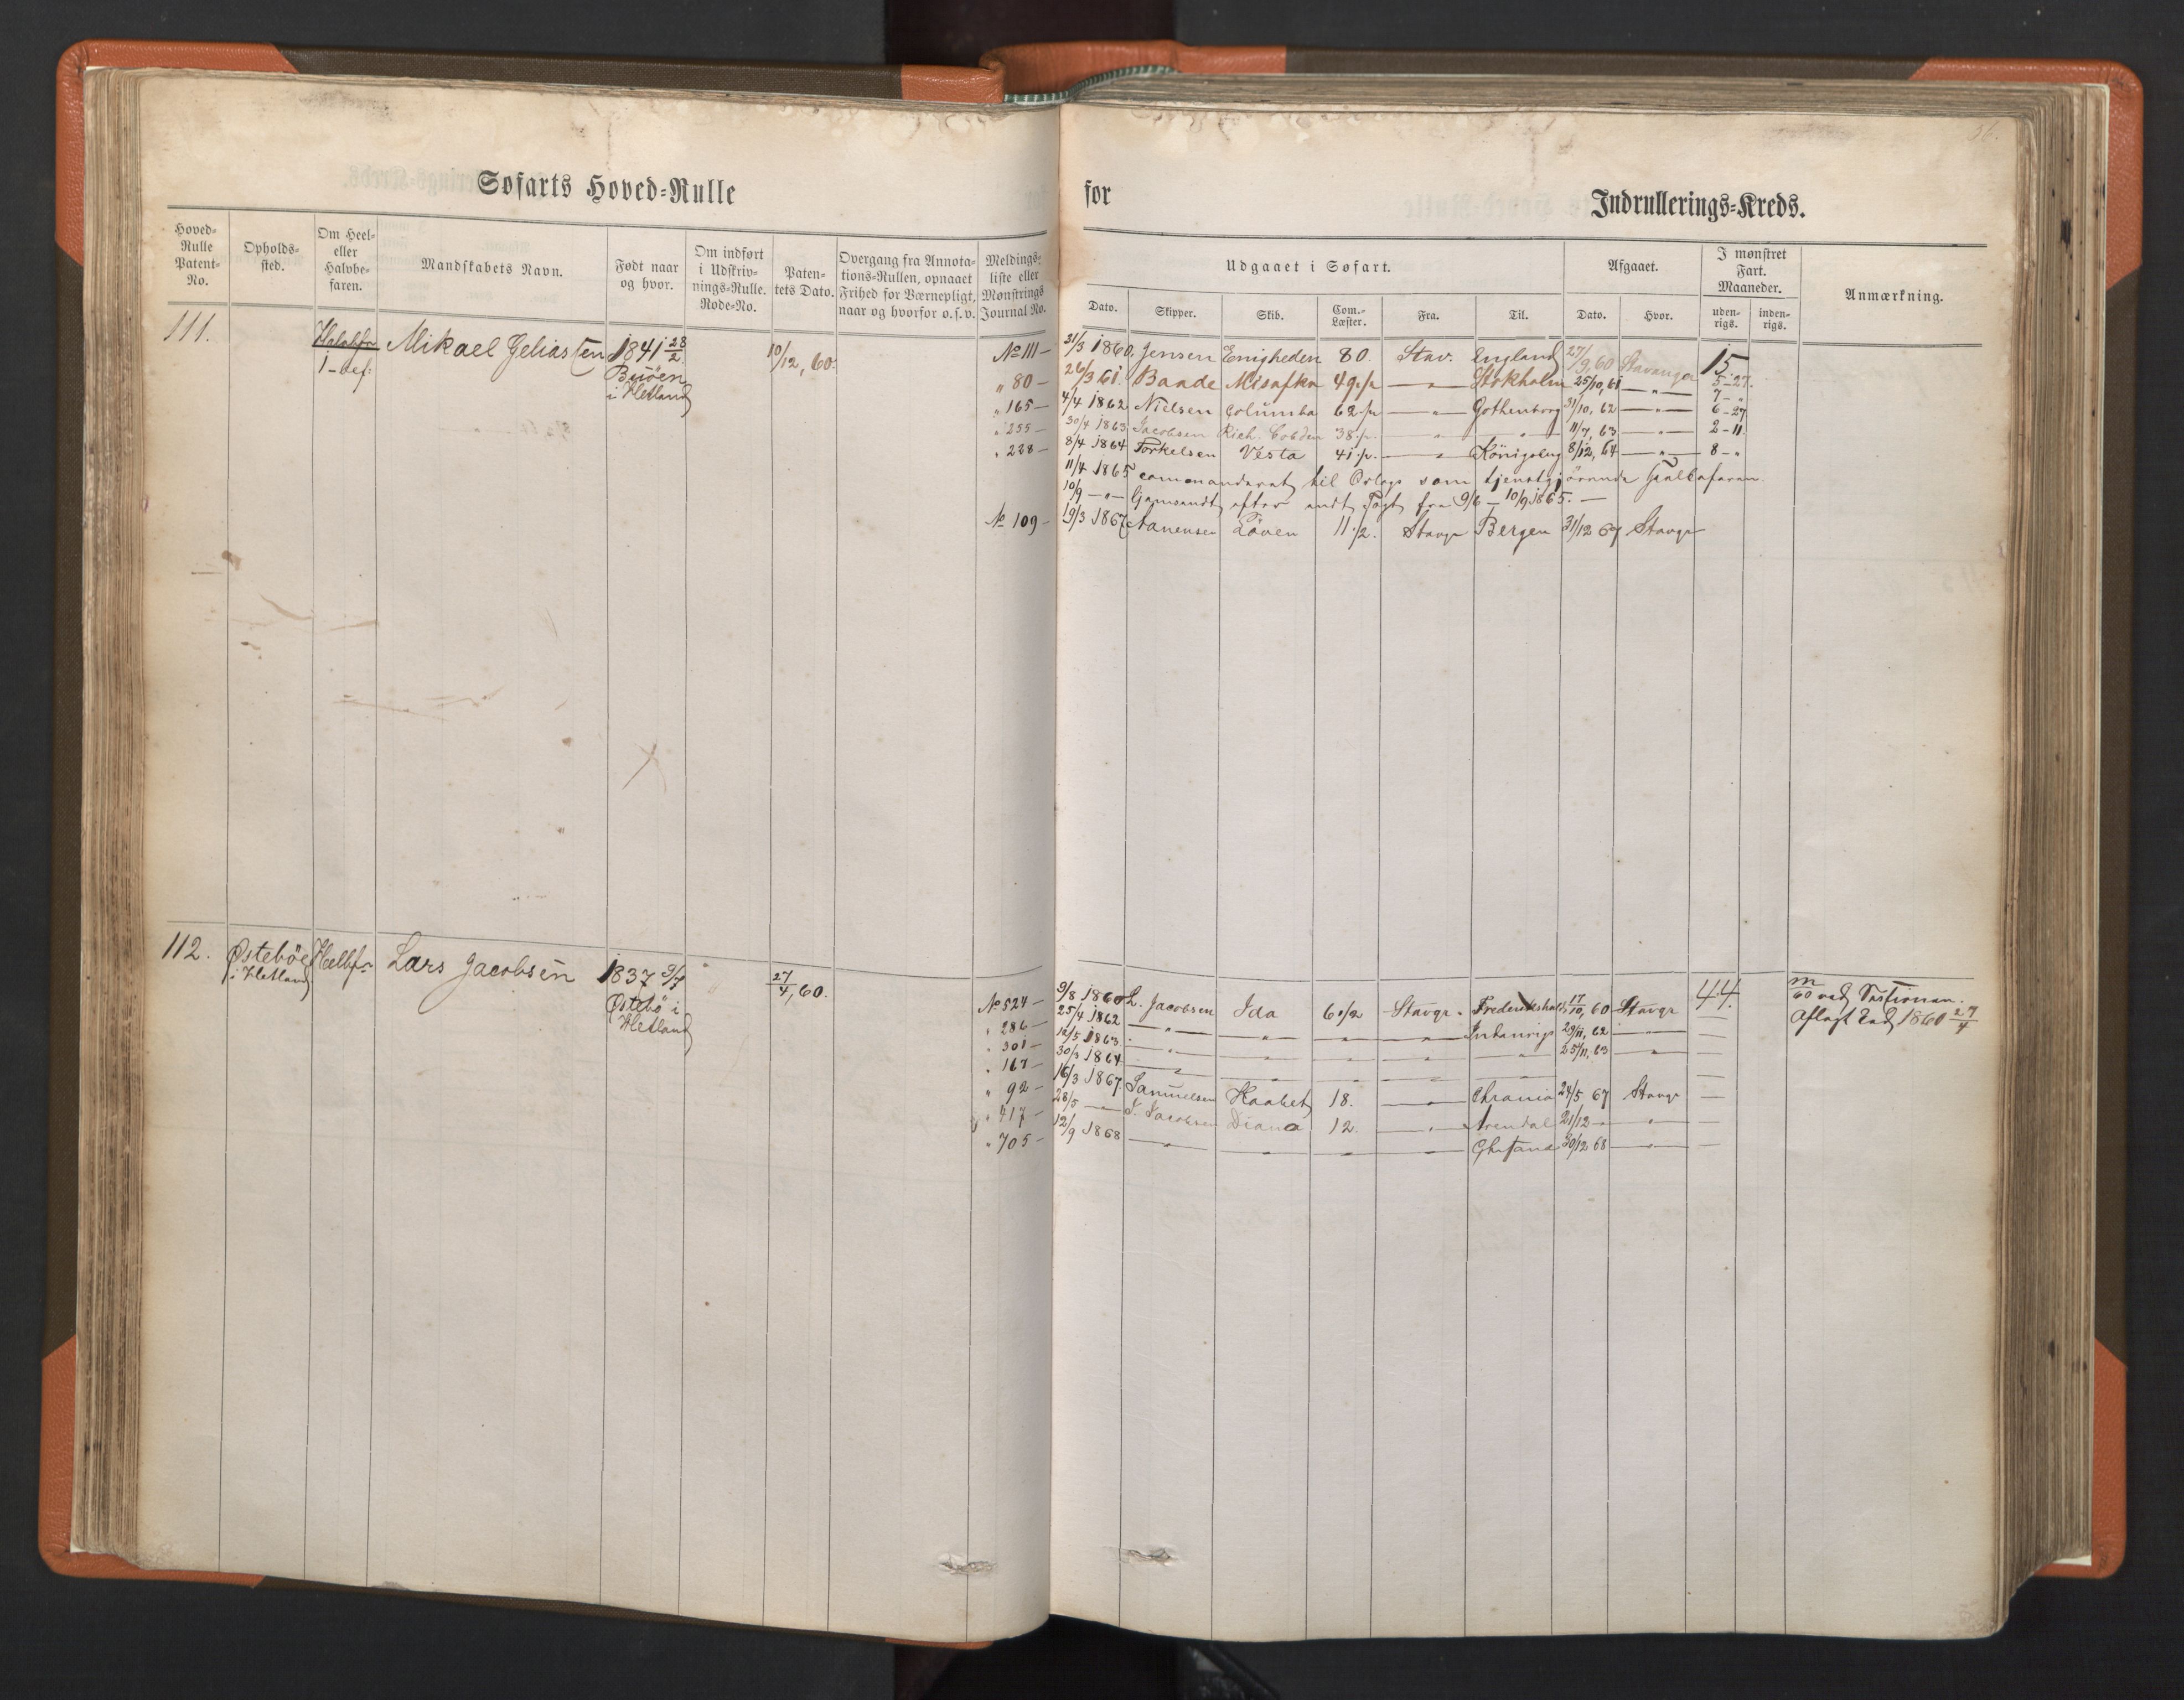 Søfarts Hoved-Rulle
for Indrullerings-Kreds.
Hoved-Rulle Patent-No.
Opholds-sted.
Om Heel- eller Halvbe-faren.
Mandskabets Navn.
Født naar og hvor.
Om indført i Udskriv-nings-Rulle. Rode-No.
Paten-tets Dato.
Overgang fra Annota-tions-Rullen, opnaaet Frihed for Værnepligt, naar og hvorfor o. s. v.
Meldings-liste eller Mønstrings Journal No.
Udgaaet i Søfart.
Afgaaet.
I mønstret Fart. Maaneder.
Anmærkning.
Dato. Skipper. Skib. Com.-Læster. Fra. Til. Dato. Hvor. uden-rigs. inden-rigs.
111. Mikael Jeliassen 1841 28/2 10/12, 60.
i Hetland
No 111 — 31/3 1860, Jensen Enigheden 80. Stav. England 27/9, 60 Stavanger 15
" 80 — 26/3 61. Baade 49 1/2 — " — Stokholm 25/10, 61 — " — 5-27.
" 165 — 4/4 1862 Nielsen Columba 62 1/2 — " — Gothenborg 31/10, 62 — " — 7 - "
" 255 — 30/4 1863 Jacobsen Rich. Cobden 38 1/2 — " — " — 11/7, 63 — " — 6-27
2-11.
" 228 — 8/4 1864 Torkelsen Vesta 41 1/2 — " — Königsberg 8/12, 64 — " — 8 - "
11/4 1865 commanderet til Orlogs som tjenstgjörende
10/9 — " — Hjemsendt efter endt Togt fra 9/6 — 10/9 1865. —
No 109 — 19/3 1867 Aanensen Löven 11 1/2. Stavgr Bergen 31/12 67 Stavgr
112. Østeböe i Hetland Heelbf. Lars Jacobsen 1837 9/7 27/4, 60.
Østebö i Hetland
No 524 — 9/8 1860 L. Jacobsen Ida 6 1/2 — Stavgr. Frederikshald 17/10, 60 Stavgr 44.
" 286 — 25/4 1862 — " — " — " — " — Indenrigs 29/11, 62 — " —
" 301 — 12/5 1863 — " — " — " — " — " — 25/11, 63 — " —
" 167 — 30/3 1864 — " — " — " — " — " —
" 92 — 16/3 1867 Samuelsen Haabet 18. — " — Chrania 24/5 67 Stavgr —
" 417 — 28/5 — " — Jacobsen Diana 12. — " — Arendal 21/12 — " — " —
" 705 — 12/9 1868 — " — " — " — " — 30/12 68 — " —
Aflagt Eed 1860 27/4